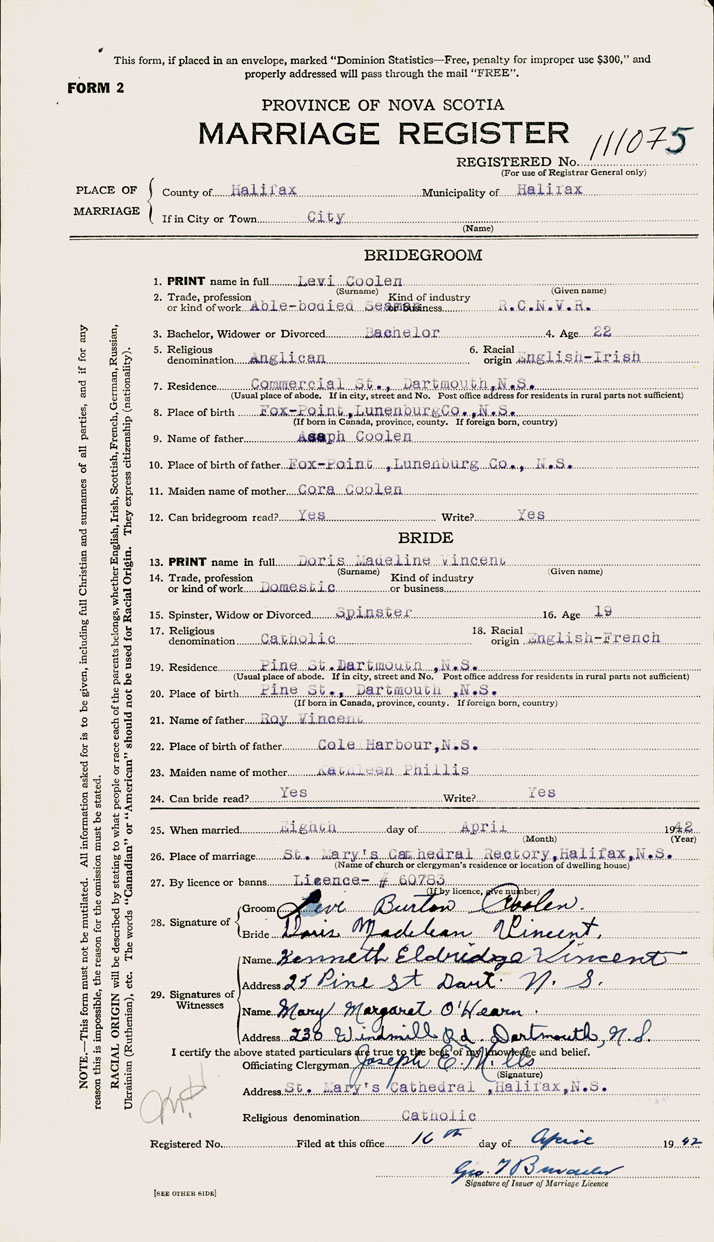 This form, if placed in an envelope, marked "Dominion Statistics—Free, penalty for improper use $300," and
properly addressed will pass through the mail "FREE".
FORM 2
PROVINCE OF NOVA SCOTIA
MARRIAGE REGISTER
REGISTERED No. 111075
(For use of Registrar General only)
PLACE OF MARRIAGE
County of Halifax Municipality of Halifax
If in City or Town City
(Name)
BRIDEGROOM
1. PRINT name in full Levi Coolen
(Surname) (Given name)
2. Trade, profession or kind of work Able-bodied Seaman Kind of industry or business R.C.N.V.R.
3. Bachelor, Widower or Divorced Bachelor 4. Age 22
5. Religious denomination Anglican 6. Racial origin English-Irish
7. Residence Commercial St., Dartmouth,N.S.
(Usual place of abode. If in city, street and No. Post office address for residents in rural parts not sufficient)
8. Place of birth Fox-Point,LunenburgCo.,N.S.
(If born in Canada, province, county. If foreign born, country)
9. Name of father Asaph Coolen
10. Place of birth of father Fox-Point ,Lunenburg Co., N.S.
11. Maiden name of mother Cora Coolen
12. Can bridegroom read? Yes Write? Yes
BRIDE
13. PRINT name in full Doris Madeline Vincent
(Surname) (Given name)
14. Trade, profession or kind of work Domestic Kind of industry or business
15. Spinster, Widow or Divorced Spinster 16. Age 19
17. Religious denomination Catholic 18. Racial origin English-French
19. Residence Pine St.Dartmouth ,N.S.
(Usual place of abode. If in city, street and No. Post office address for residents in rural parts not sufficient)
20. Place of birth Pine St., Dartmouth ,N.S.
(If born in Canada, province, county. If foreign born, country)
21. Name of father Roy Vincent
22. Place of birth of father Cole Harbour,N.S.
23. Maiden name of mother Kathleen Phillis
24. Can bride read? Yes Write? Yes
25. When married Eighth day of April 1942
(Month) (Year)
26. Place of marriage St. Mary's Cathedral Rectory,Halifax,N.S.
(Name of church or clergyman's residence or location of dwelling house)
27. By licence or banns Licence- # 60783
(If by licence, give number)
28. Signature of
Groom Leve Burton Coolen.
Bride Doris Madelean Vincent.
29. Signatures of Witnesses
Name Kenneth Eldridge Vincent
Address 25 Pine St Dart. N. S.
Name Mary Margaret O'Hearn
Address 238 Windmill Rd. Dartmouth, N.S.
I certify the above stated particulars are true to the best of my knowledge and belief.
Officiating Clergyman Joseph E. Mills
(Signature)
Address St. Mary's Cathedral ,Halifax,N.S.
Religious denomination Catholic
Registered No. Filed at this office 16th day of April 1942
Geo. T
Signature of Issuer of Marriage Licence
[SEE OTHER SIDE]
NOTE.—This form must not be mutilated. All information asked for is to be given, including full Christian and surnames of all parties, and if for any
reason this is impossible, the reason for the omission must be stated.
RACIAL ORIGIN will be described by stating to what people or race each of the parents belongs, whether English, Irish, Scottish, French, German, Russian,
Ukrainian (Ruthenian), etc. The words "Canadian" or "American" should not be used for Racial Origin. They express citizenship (nationality).